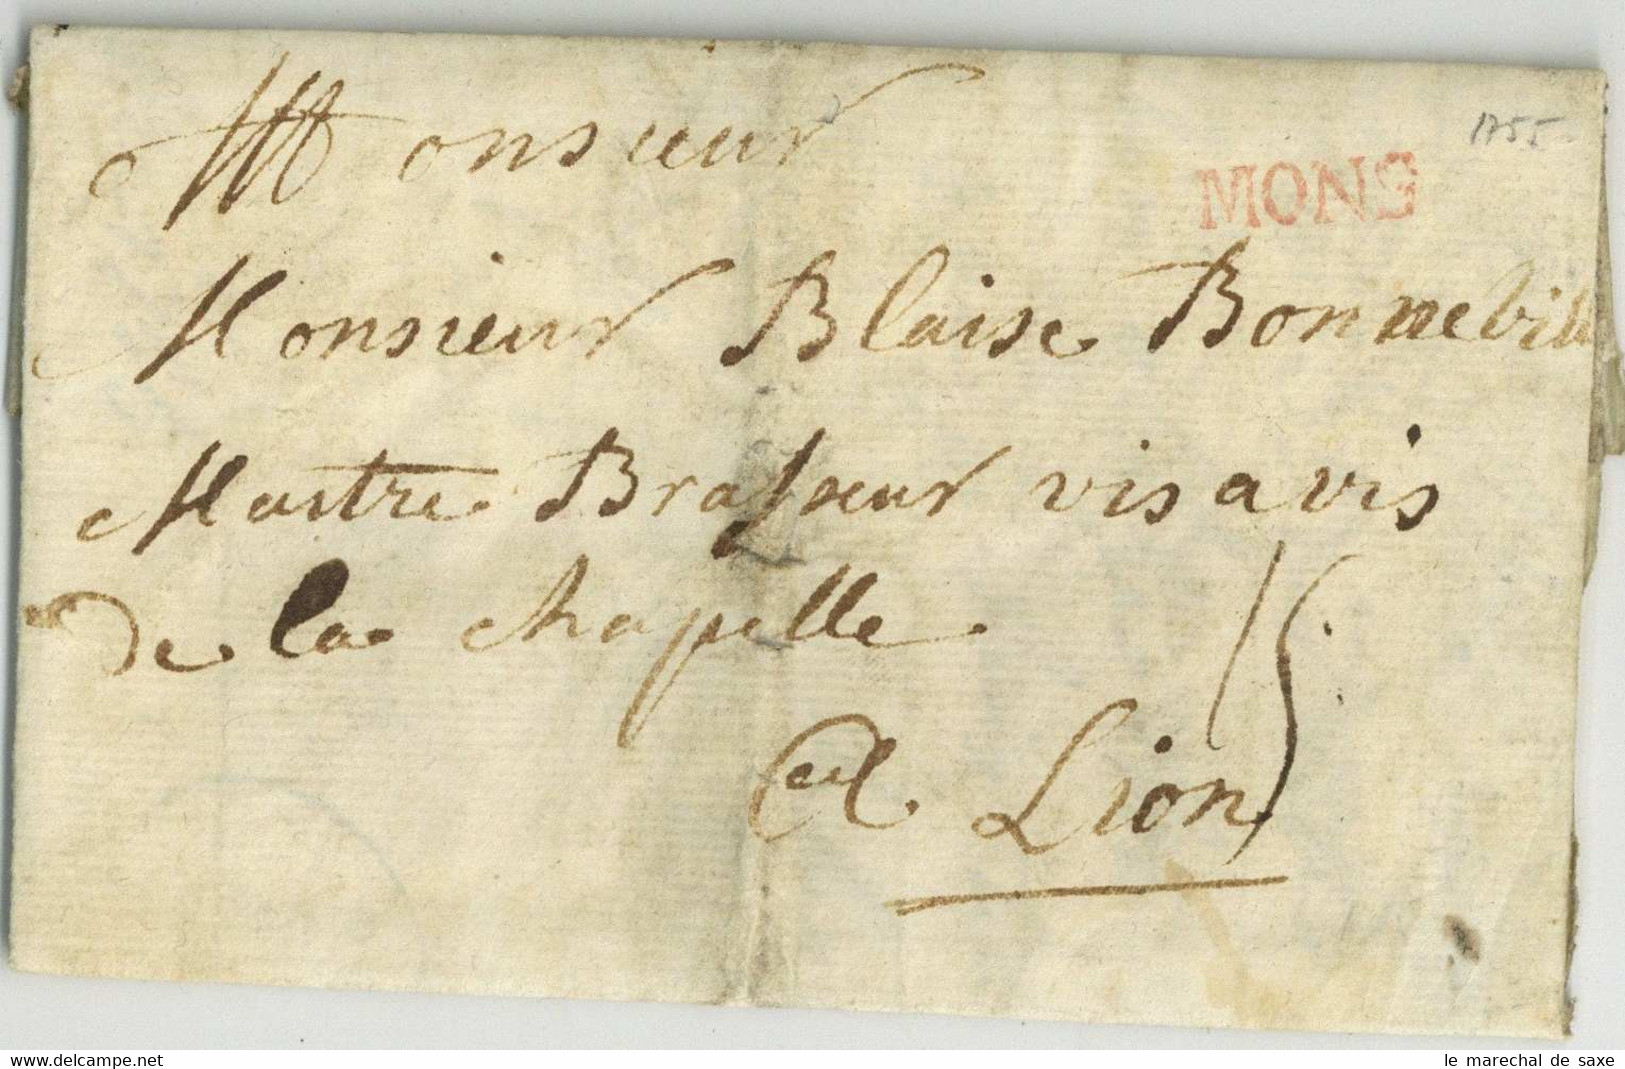 Monsieur
1755
MONS
Monsieur Blaise Bonnebille
Maitre Brasseur vis a vis
de la chapelle
15
a Lion
le marechal de saxe
www.delcampe.net